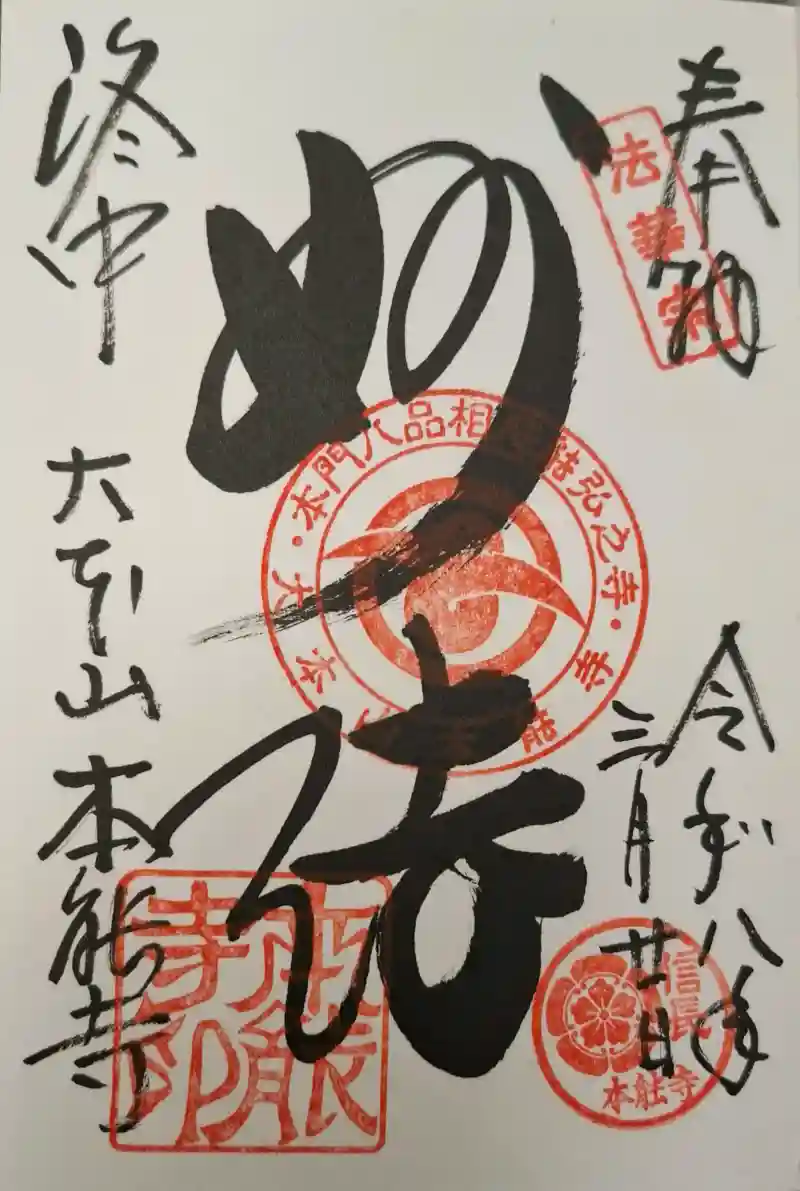 奉納
法華宗
令和八年
三月廿日
信長
本能寺
妙法
本門八品相
弘之寺
洛中
大本山 本能寺
本能寺印